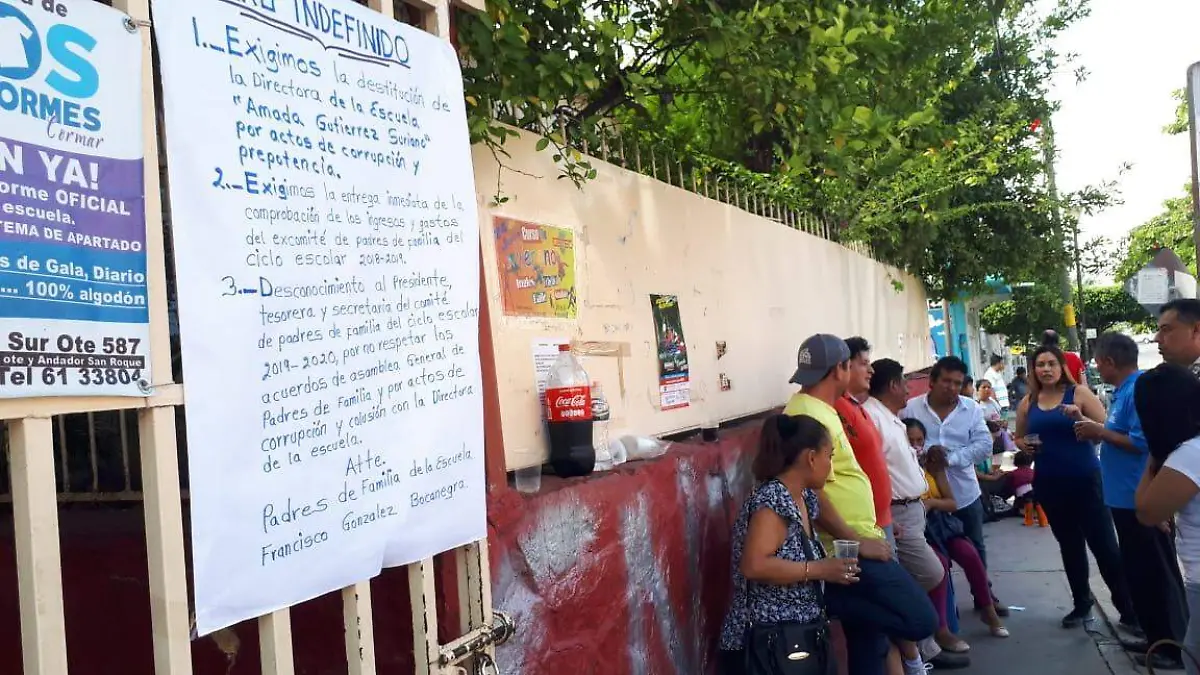 de
OS
ORMES
Cormar
N YA!
forme OFICIAL
escuela.
TEMA DE APARTADO
s de Gala, Diario
... 100% algodón
Sur Ote 587
ote y Andador San Roque
Tel 61 33804
INDEFINIDO
1._Exigimos la destitución de
la Directora de la Escuela
"Amada Gutierrez Suriano"
por actos de corrupción y
prepotencia.
2._Exigimos la entrega inmediata de la
comprobación de los ingresos y gastos
del excomité de padres de familia del
ciclo escolar 2018-2019.
3._Desconocimiento al Presidente,
tesorera y secretaria del comité
de padres de familia del ciclo escolar
2019-2020, por no respetar los
acuerdos de asamblea General de
Padres de Familia y por actos de
corrupción y colusión con la Directora
de la escuela.
Atte.
Padres de Familia de la Escuela
Francisco Gonzalez Bocanegra.
Curso
Coca-Cola